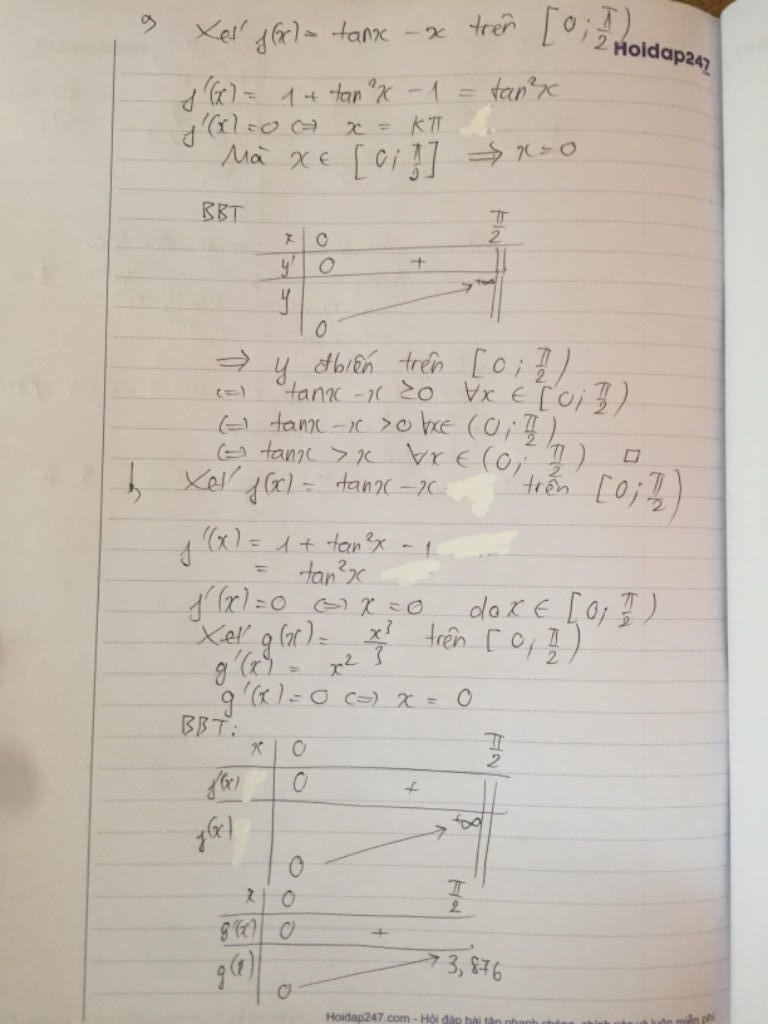 a, Xét f(x) = tanx - x trên [0; π/2)
Hoidap247
f'(x) = 1 + tan²x - 1 = tan²x
f'(x) = 0 <=> x = kπ
Mà x ∈ [0; π/2] => x = 0
BBT
x | 0 π/2
y' | 0 + ||
y | 0 → +∞ ||
=> y đbiến trên [0; π/2)
<=> tanx - x ≥ 0 ∀x ∈ [0; π/2)
<=> tanx - x > 0 ∀x ∈ (0; π/2)
<=> tanx > x ∀x ∈ (0; π/2) □
b, Xét f(x) = tanx - x trên [0; π/2)
f'(x) = 1 + tan²x - 1
= tan²x
f'(x) = 0 <=> x = 0 do x ∈ [0; π/2)
Xét g(x) = x³/3 trên [0; π/2)
g'(x) = x²
g'(x) = 0 <=> x = 0
BBT:
x | 0 π/2
f'(x) | 0 + ||
f(x) | 0 → +∞ ||
x | 0 π/2
g'(x) | 0 +
g(x) | 0 → 3,876
Hoidap247.com - Hỏi đáp bài tập nhanh chóng, chính xác và luôn miễn phí